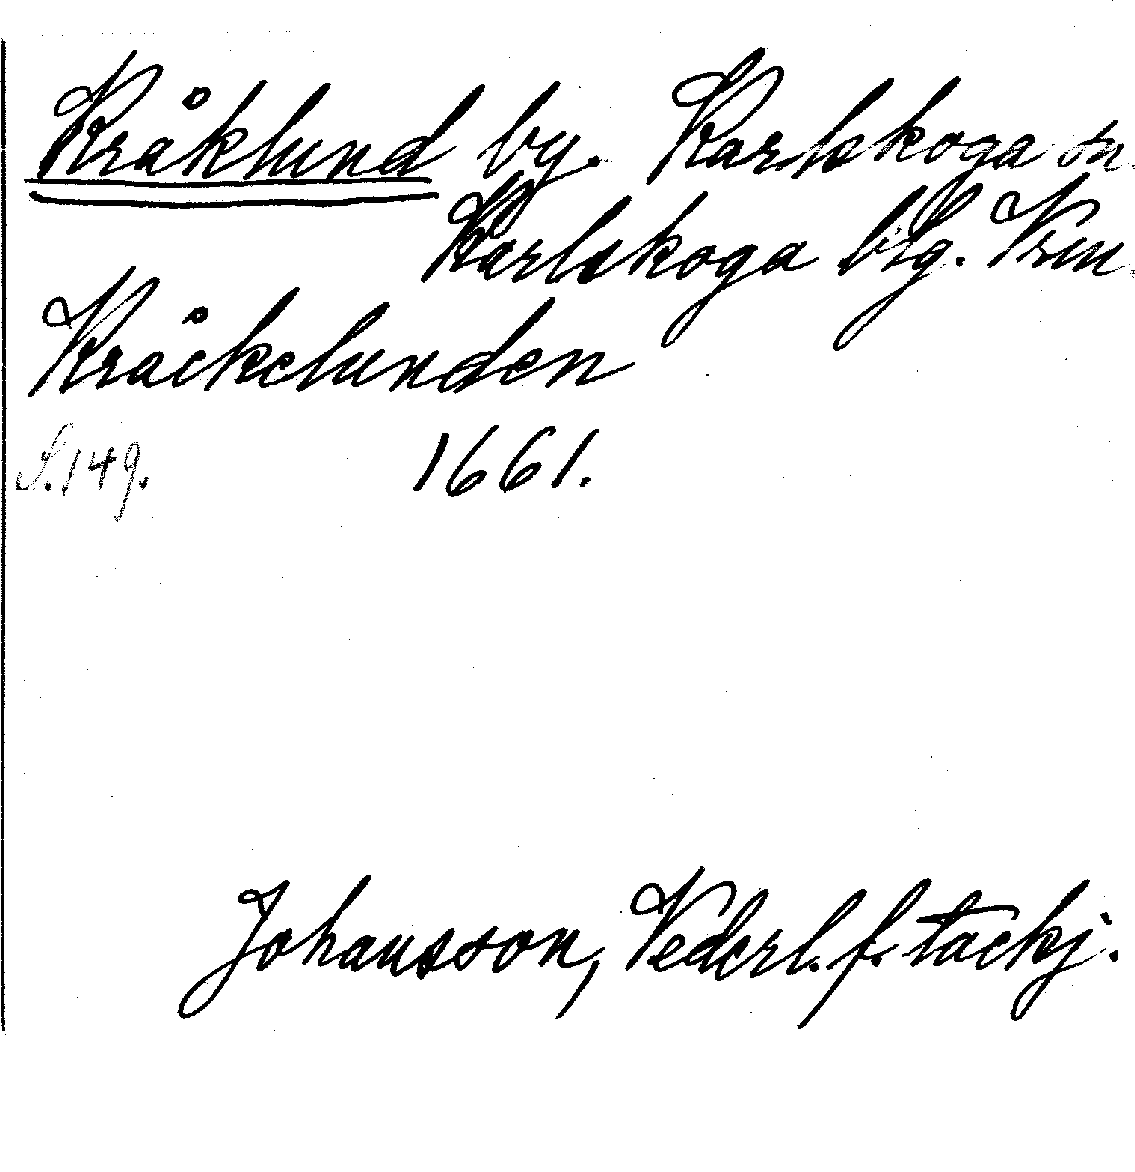 Kråklund by. Karlskoga sn.
Karlskoga bsg. Vrm.
Kråckelunden
S. 149. 1661.
Johansson, Vederl. f. tackj.